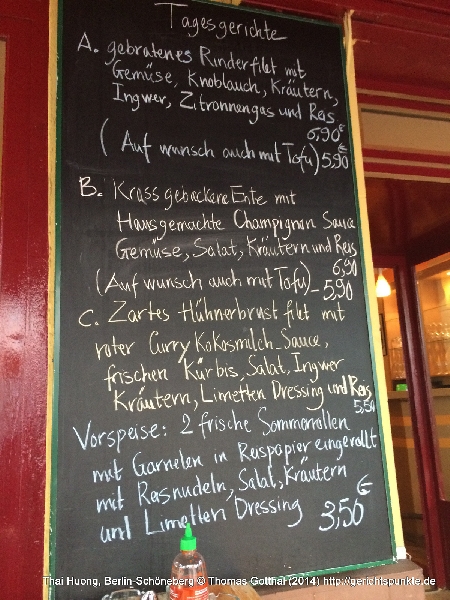 Tagesgerichte
A. gebratenes Rinderfilet mit
Gemüse, Knoblauch, Kräutern,
Ingwer, Zitronnengas und Reis
6,90€
( Auf wunsch auch mit Tofu) 5,90€
B. Kross gebackene Ente mit
Hausgemachte Champignon Sauce
Gemüse, Salat, Kräutern und Reis
6,90
(Auf wunsch auch mit Tofu) - 5,90
C. Zartes Hühnerbrust filet mit
roter Curry Kokosmilch-Sauce,
frischen Kürbis, Salat, Ingwer
Kräutern, Limetten Dressing und Reis
5,50
Vorspeise: 2 frische Sommerrollen
mit Garnelen in Reispapier eingerollt
mit Reisnudeln, Salat, Kräutern
und Limetten Dressing 3,50€
Thai Huong, Berlin-Schöneberg © Thomas Gotthal (2014) http://gerichtspunkte.de